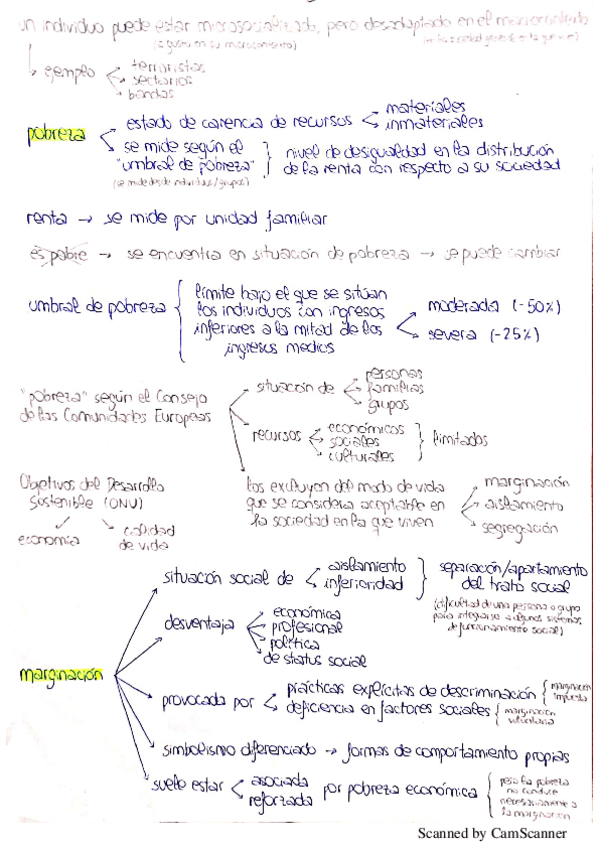 un individuo puede estar microsocializado, pero desadaptado en el macrocontexto
(a gusto en su microcontexto) (en la sociedad general en la que vive)
ejemplo
terroristas
sectarios
bandas
pobreza
estado de carencia de recursos
materiales
inmateriales
se mide según el
"umbral de pobreza"
(se mide desde individuos/grupos)
nivel de desigualdad en la distribución
de la renta con respecto a su sociedad
renta → se mide por unidad familiar
es pobre → se encuentra en situación de pobreza → se puede cambiar
umbral de pobreza
límite bajo el que se sitúan
los individuos con ingresos
inferiores a la mitad de los
ingresos medios
moderada (-50%)
severa (-25%)
"pobreza" según el Consejo
de las Comunidades Europeas
situación de
personas
familias
grupos
recursos
económicos
sociales
culturales
limitados
los excluyen del modo de vida
que se considera aceptable en
la sociedad en la que viven
marginación
aislamiento
segregación
Objetivos del Desarrollo
Sostenible (ONU)
economía
calidad
de vida
marginación
situación social de
aislamiento
inferioridad
separación/apartamiento
del trato social
(dificultad de una persona o grupo
para integrarse a algunos sistemas
de funcionamiento social)
desventaja
económica
profesional
política
de status social
provocada por
prácticas explícitas de descriminación
marginación
impuesta
deficiencia en factores sociales
marginación
voluntaria
simbolismo diferenciado → formas de comportamiento propias
suele estar
asociada
reforzada
por pobreza económica
pero la pobreza
no conduce
necesariamente a
la marginación
Scanned by CamScanner